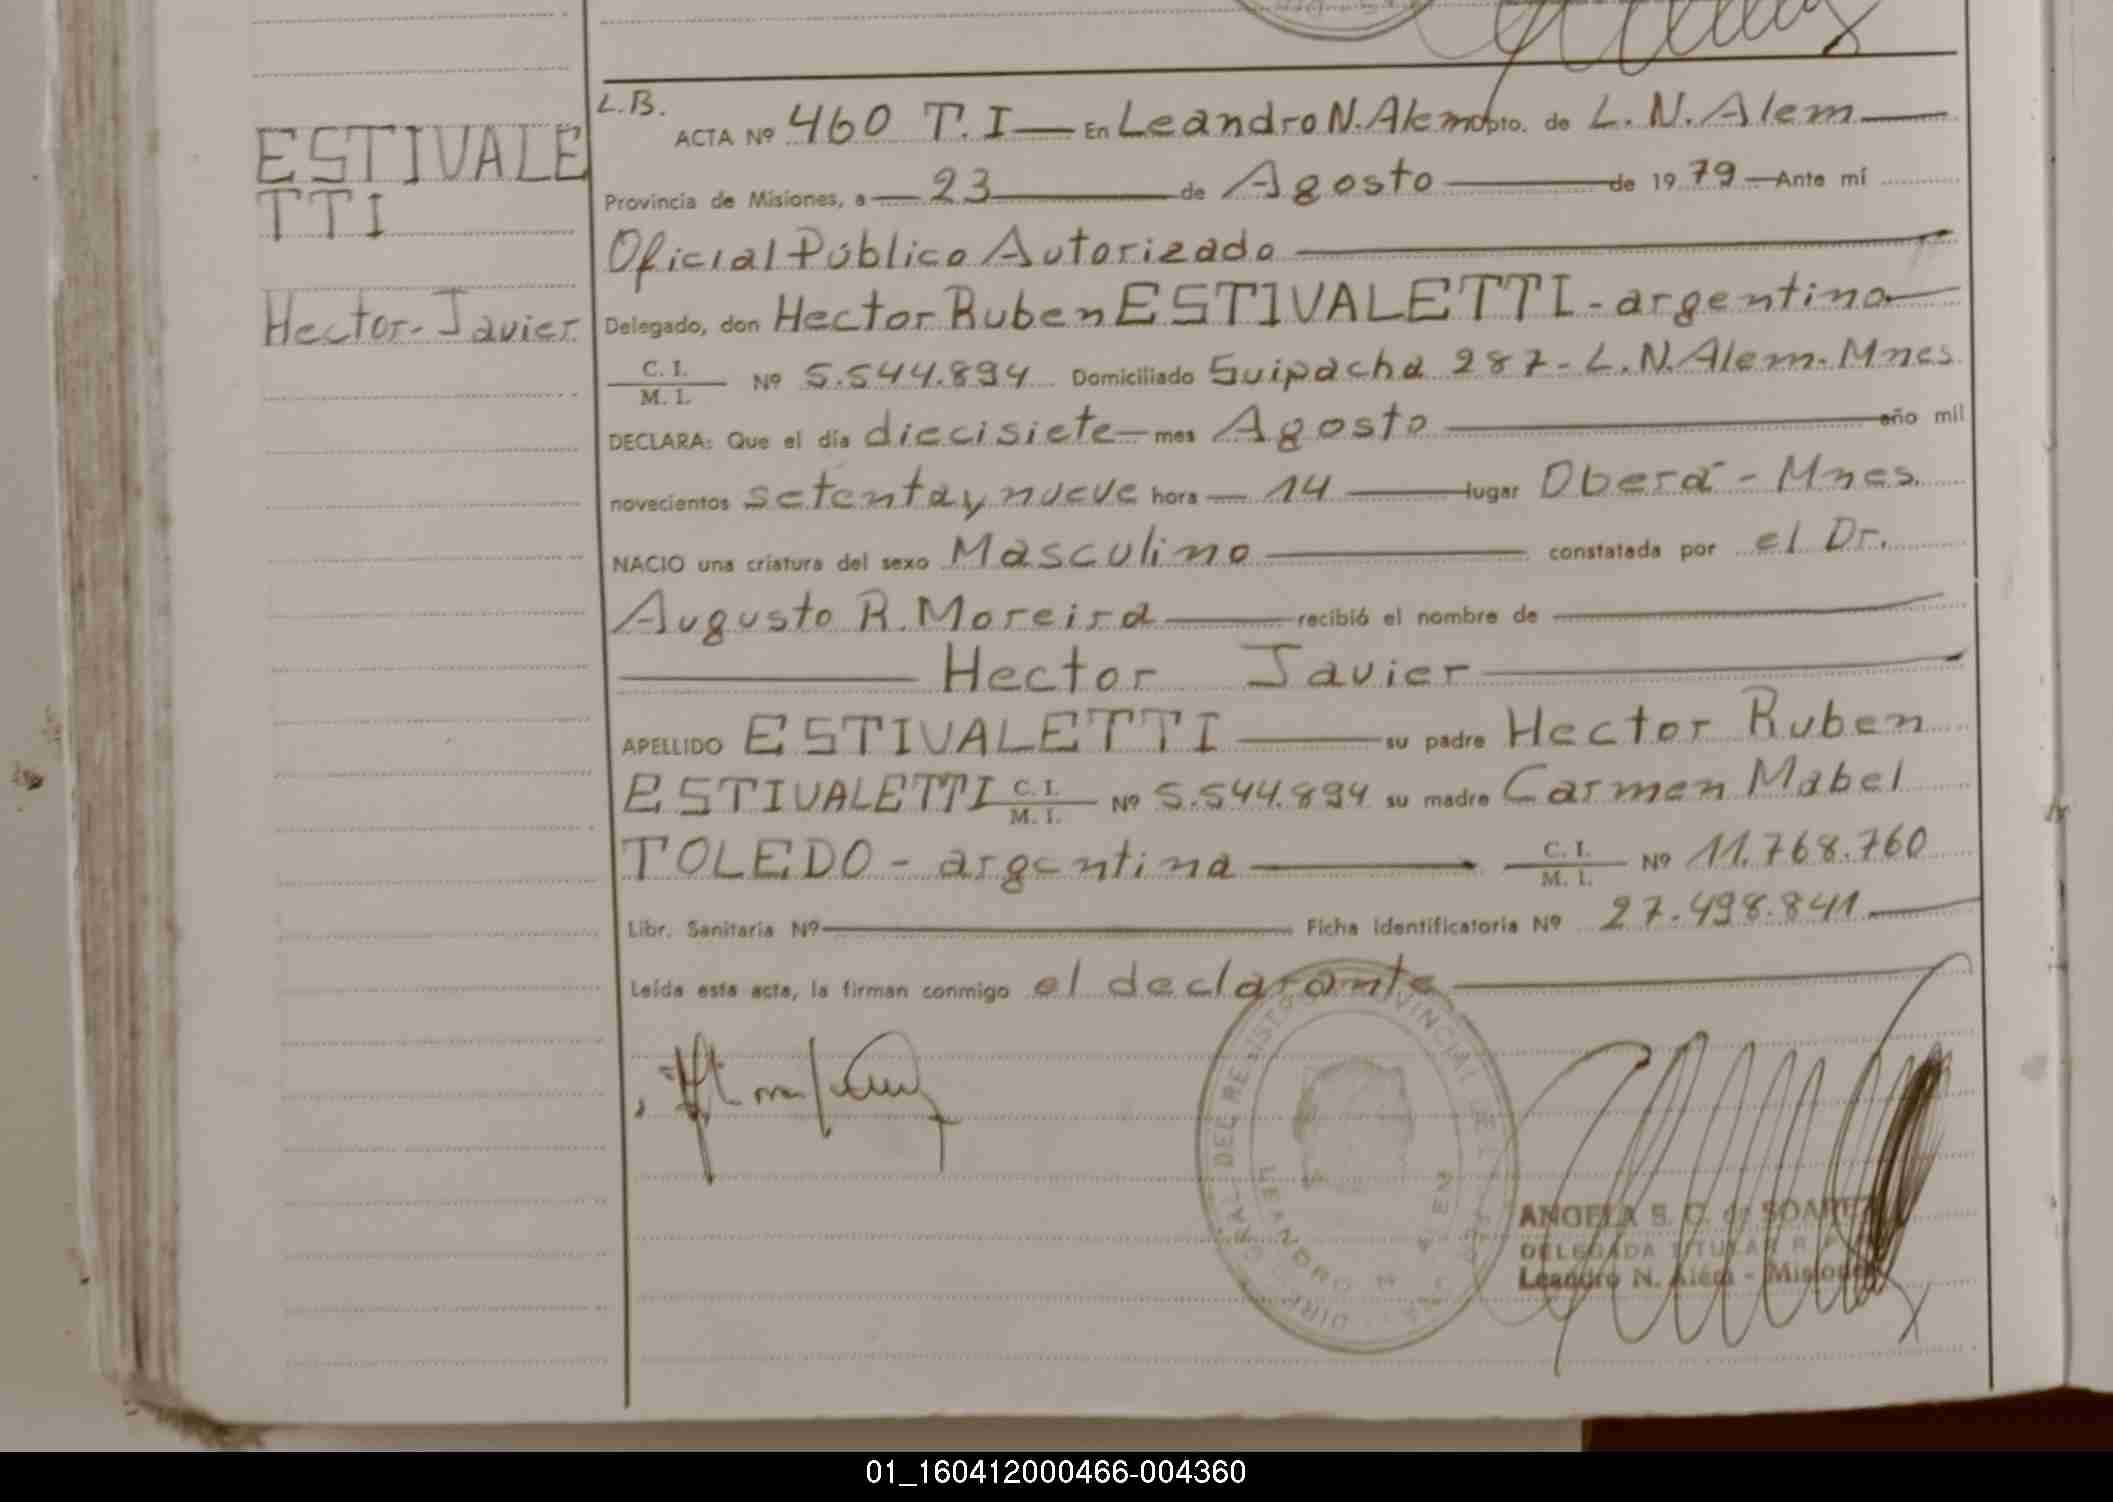 ESTIVALE
TTI
Hector-Javier
L.B.
ACTA Nº 460 T.I — En Leandro N. Alem Dpto. de L. N. Alem —
Provincia de Misiones, a — 23 — de Agosto — de 1979 — Ante mí
Oficial Público Autorizado —
Delegado, don Hector Ruben ESTIVALETTI - argentino —
C. I.
M. I. Nº 5.544.894 Domiciliado Suipacha 287 - L. N. Alem - Mnes.
DECLARA: Que el día diecisiete — mes Agosto — año mil
novecientos setenta y nueve hora — 14 — lugar Oberá - Mnes.
NACIO una criatura del sexo Masculino — constatada por el Dr.
Augusto R. Moreira — recibió el nombre de —
— Hector Javier —
APELLIDO ESTIVALETTI — su padre Hector Ruben
ESTIVALETTI C. I. M. I. Nº 5.544.894 su madre Carmen Mabel
TOLEDO - argentina — C. I. M. I. Nº 11.768.760
Libr. Sanitaria Nº — Ficha Identificatoria Nº 27.498.841 —
Leída esta acta, la firman conmigo el declarante —
DIREC. GRAL. DEL REGISTRO PROVINCIAL DE LAS
LEANDRO N. ALEM
ANGELA S. C. de SOAREZ
DELEGADA TITULAR R. P.
Leandro N. Alem - Misiones
01_160412000466-004360